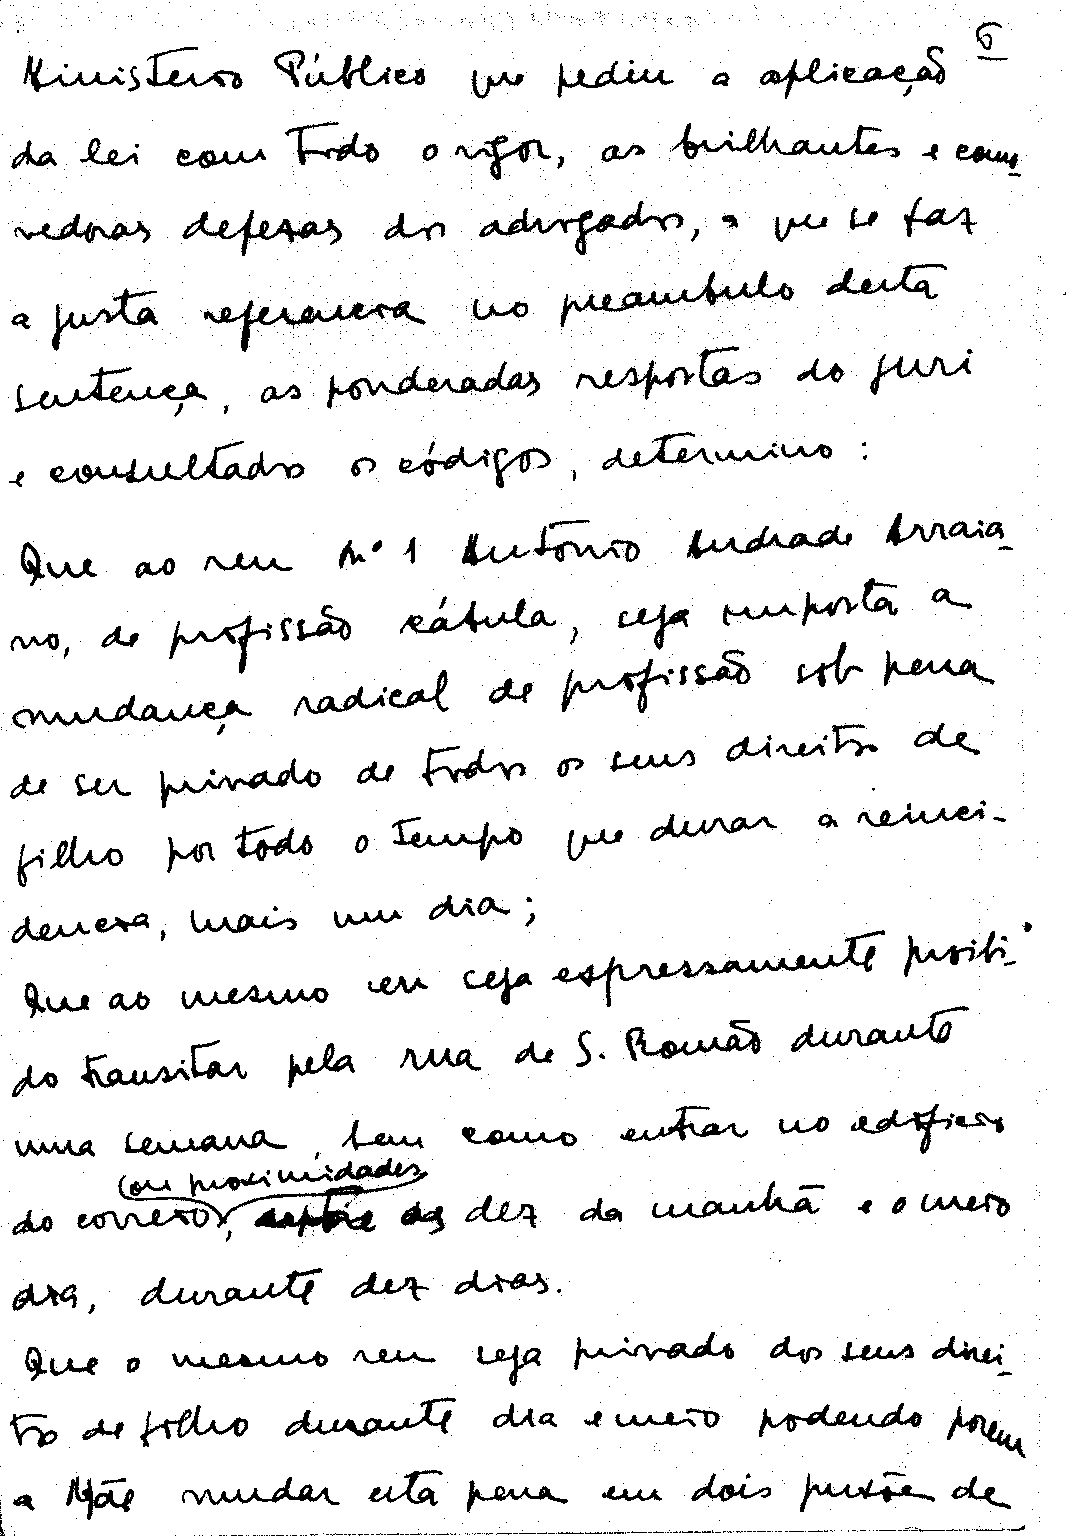 6
Ministerio Público que pediu a aplicação
da lei com todo o rigor, as brilhantes e como-
vedoras defezas dos advogados, a que se faz
a justa referencia no preambulo desta
sentença, as ponderadas respostas do juri
e consultados os códigos, determino:
Que ao reu nº 1 António Andrade Arraia-
no, de profissão cábula, seja imposta a
mudança radical de profissão sob pena
de ser privado de todos os seus direitos de
filho por todo o tempo que durar a reinci-
dencia, mais um dia;
Que ao mesmo reu seja espressamente proibi-
do transitar pela rua de S. Romão durante
uma semana, bem como entrar no edificio
(ou proximidades)
do correio, das dez da manhã e o meio
dia, durante dez dias.
Que o mesmo reu seja privado dos seus direi-
tos de filho durante dia e meio podendo porem
a Mãe mudar esta pena em dois pudões de